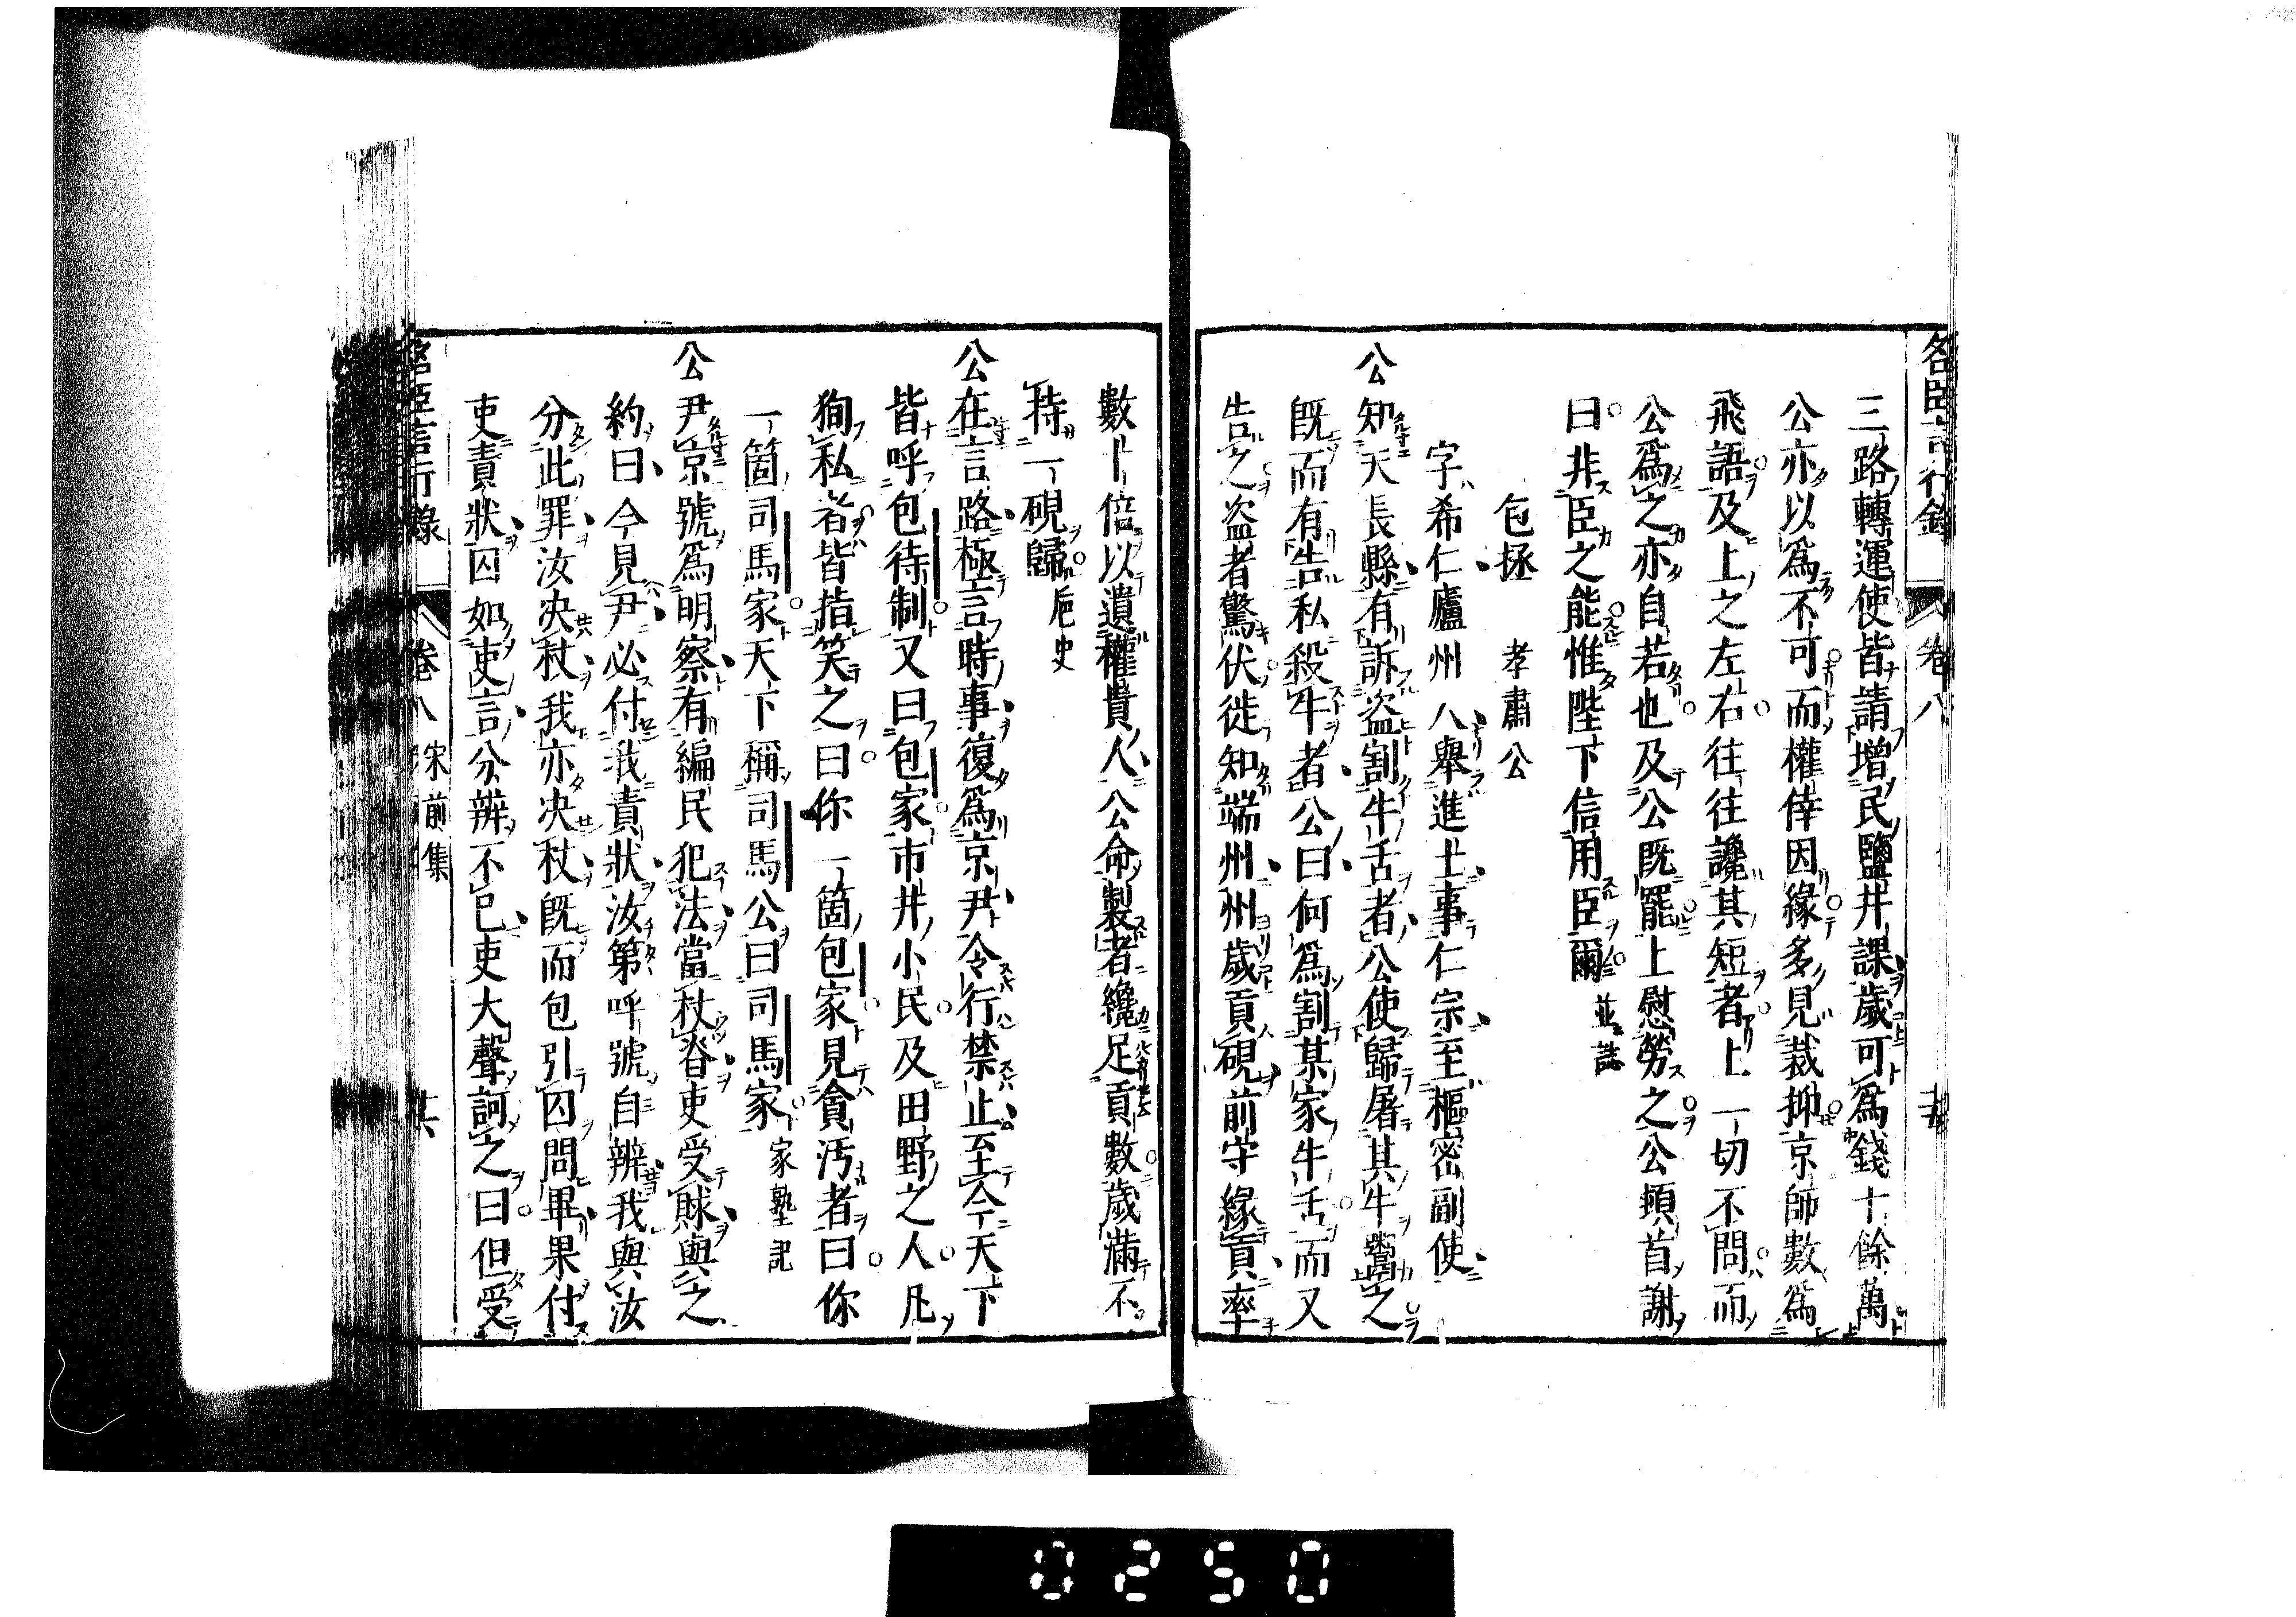 名臣言行錄 卷八
三路轉運使皆請增民鹽井課歲可爲錢十餘萬
公亦以爲不可而權倖因緣多見裁抑京師數爲
飛語及上之左右往往讒其短者上一切不問而
公爲之亦自若也及公既罷上慰勞之公頓首謝
曰非臣之能惟陛下信用臣爾 並誌
包拯 孝肅公
字希仁廬州人舉進士事仁宗至樞密副使
公知天長縣有訴盜割牛舌者公使歸屠其牛鬻之
既而有告私殺牛者公曰何爲割某家牛舌而又
告之盜者驚伏徙知端州州歲貢硯前守緣貢率
數十倍以遺權貴人公命製者纔足貢數歲滿不
持一硯歸 巵史
公在言路極言時事復爲京尹令行禁止至今天下
皆呼包待制又曰包家市井小民及田野之人凡
狥私者皆指笑之曰你一箇包家見貪汚者曰你
一箇司馬家天下稱司馬公曰司馬家 家塾記
公尹京號爲明察有編民犯法當杖脊吏受賕與之
約曰今見尹必付我責狀汝第呼號自辨我與汝
分此罪汝决杖我亦决杖既而包引囚問畢果付
吏責狀囚如吏言分辨不已吏大聲訶之曰但受
名臣言行錄 卷八 宋前集
0250